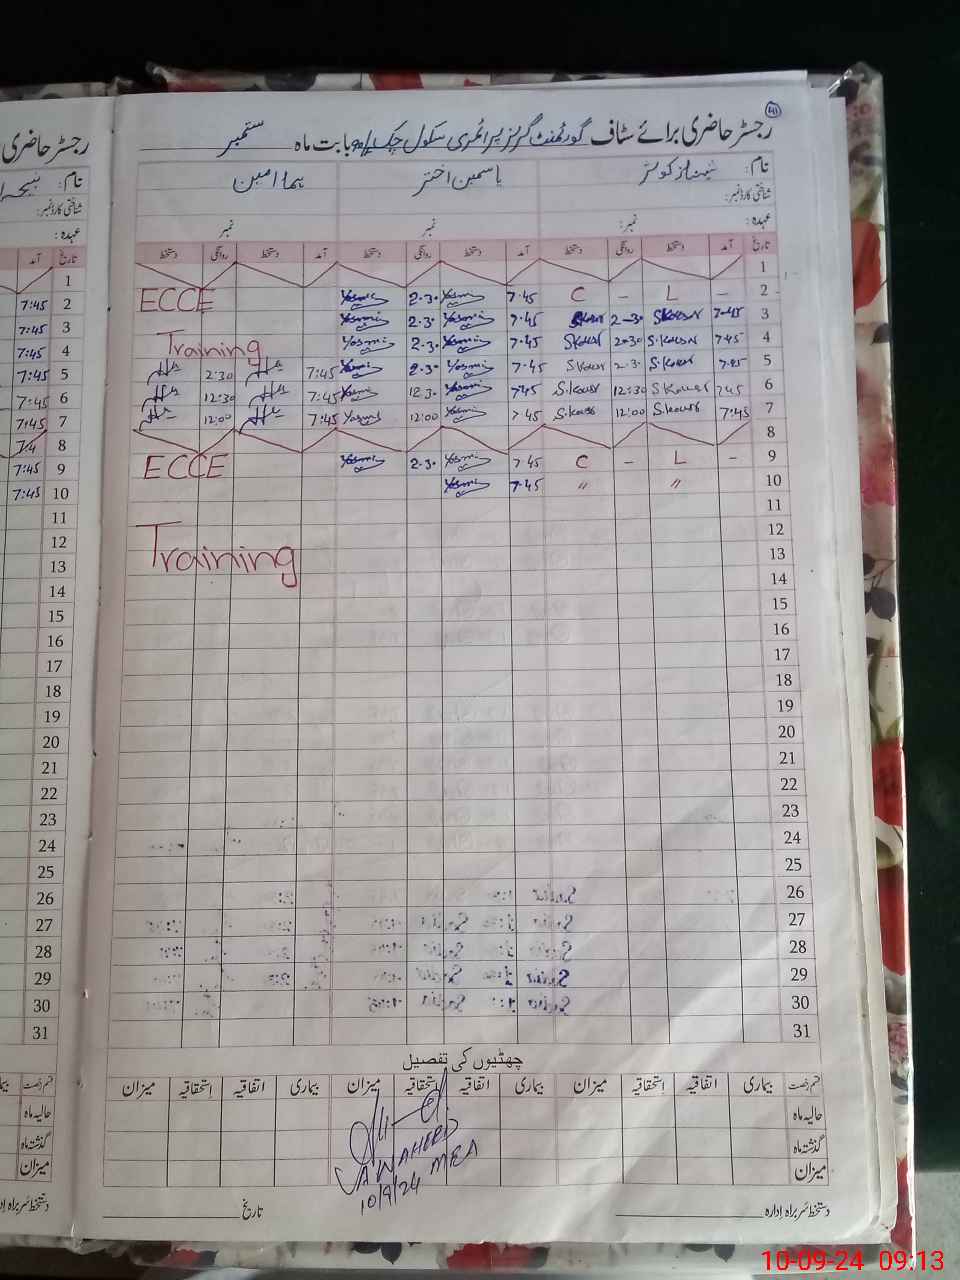 41
رجسٹر حاضری برائے سٹاف گورنمنٹ گرلز پرائمری سکول چک بابت ماہ ستمبر
نام: شہناز کوثر یاسمین اختر ہما امین
شناختی کارڈ نمبر:
عہدہ: نمبر: نمبر نمبر
تاریخ آمد دستخط روانگی دستخط آمد دستخط روانگی دستخط آمد دستخط روانگی دستخط
1
ECCE Yasmi 2.30 Yasmi 7.45 C – L – 2
Yasmi 2.30 Yasmi 7.45 S.Kousr 2-30 S.Kousar 7.45 3
Training Yasmi 2.30 Yasmi 7.45 S.Kousr 2.30 S.Kousar 7.45 4
2:30 7:45 Yasmi 2.30 Yasmi 7.45 S.Kousr 2.30 S.Kousr 7.45 5
12:30 7:45 Yasmi 12.30 Yasmi 7.45 S.Kousr 12:30 S.Kousar 7.45 6
12:00 7:45 Yasmi 12:00 Yasmi 7.45 S.Kousr 12:00 S.Kousr 7:45 7
8
ECCE Yasmi 2.30 Yasmi 7.45 C – L – 9
Yasmi 7.45 〃 〃 10
11
Training 12
13
14
15
16
17
18
19
20
21
22
23
24
25
26
27
28
29
30
31
چھٹیوں کی تفصیل
قسم رخصت بیماری اتفاقیہ استحقاقیہ میزان بیماری اتفاقیہ استحقاقیہ میزان بیماری اتفاقیہ استحقاقیہ میزان
حالیہ ماہ
گذشتہ ماہ
میزان
WAHEED
10/9/24 MEA
دستخط سربراہ ادارہ تاریخ
رجسٹر حاضری
نام:
شناختی کارڈ نمبر:
عہدہ:
تاریخ آمد
1
7:45 2
7:45 3
7:45 4
7:45 5
7:45 6
7:45 7
7:4 8
7:45 9
7:45 10
11
12
13
14
15
16
17
18
19
20
21
22
23
24
26
27
28
29
30
31
قسم رخصت
حالیہ ماہ
گذشتہ ماہ
میزان
دستخط سربراہ
10-09-24 09:13